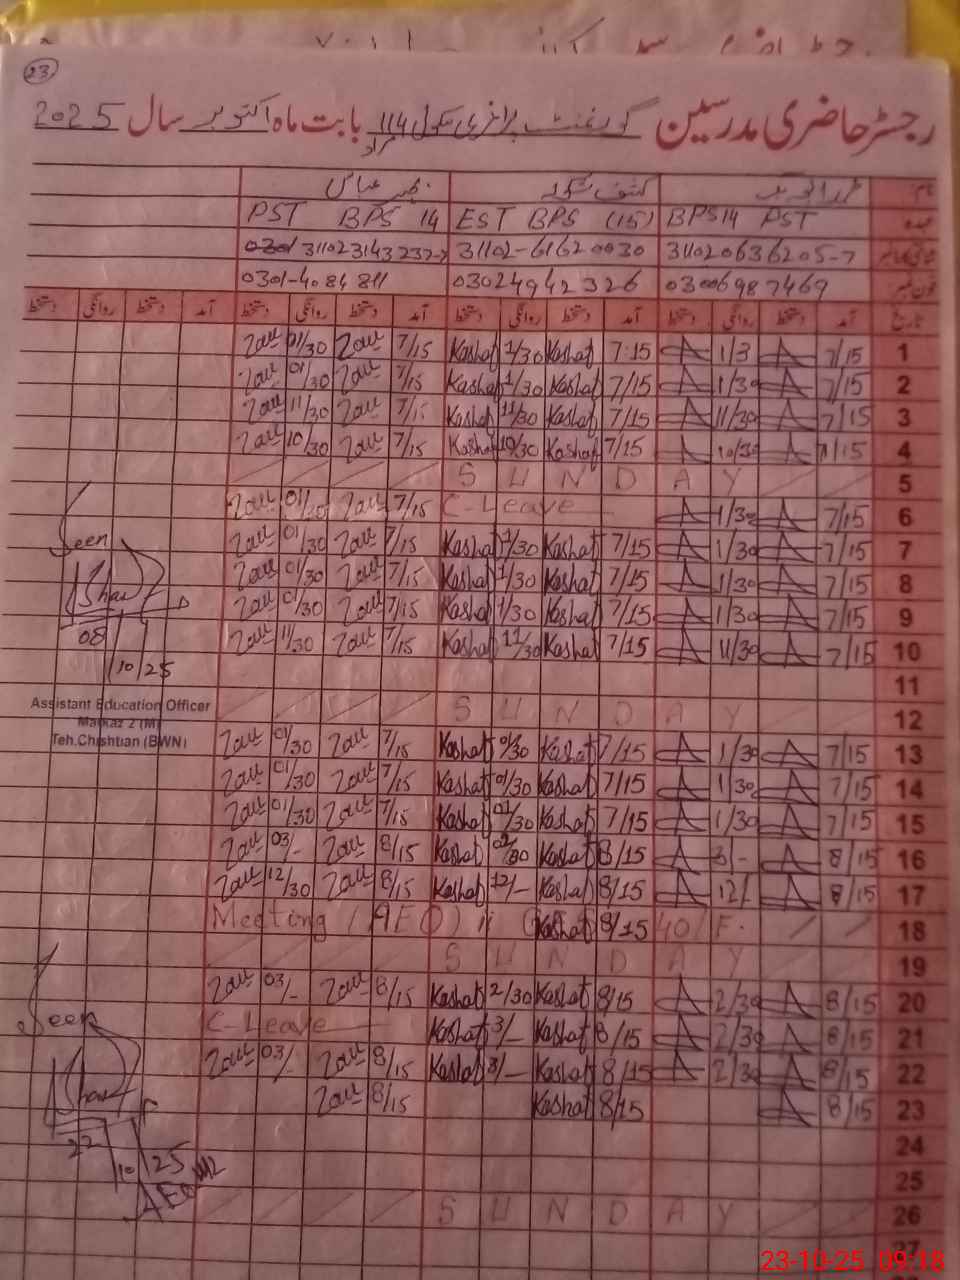 23
رجسٹر حاضری مدرسین گورنمنٹ سکول 114 مراد بابت ماہ اکتوبر سال 2025
نام
عہدہ BPS 14 PST EST BPS (15) PST BPS 14
31102-6162 0030
فون نمبر 03006987469 03024942326 0301-4084811
تاریخ آمد دستخط روانگی دستخط آمد دستخط روانگی دستخط آمد دستخط روانگی دستخط آمد دستخط روانگی دستخط
1 7/15 A 1/3 A 7:15 Kashaf 1/30 Kashaf 7/15 01/30
2 7/15 A 1/30 A 7/15 Kashaf 1/30 Kashaf 7/15 01/30
3 7/15 A 11/30 A 7/15 Kashaf 11/30 Kashaf 7/15 11/30
4 7/15 A 10/30 A 7/15 Kashaf 10/30 Kashaf 7/15 10/30
5 SUNDAY
6 7/15 A 1/30 A C-Leave 7/15 01/30
7 7/15 A 1/30 A 7/15 Kashaf 1/30 Kashaf 7/15 01/30
8 7/15 A 1/30 A 7/15 Kashaf 1/30 Kashaf 7/15 01/30
9 7/15 A 1/30 A 7/15 Kashaf 1/30 Kashaf 7/15 01/30
10 7/15 A 11/30 A 7/15 Kashaf 11/30 Kashaf 7/15 11/30
11
12 SUNDAY
13 7/15 A 1/30 A 7/15 Kashaf Kashaf 7/15 01/30
14 7/15 A 1/30 A 7/15 Kashaf 01/30 Kashaf 7/15 01/30
15 7/15 A 1/30 A 7/15 Kashaf 01/30 Kashaf 7/15 01/30
16 8/15 A 3/- A 8/15 Kashaf Kashaf 8/15 03/-
17 8/15 A 12/- A 8/15 Kashaf 12/- Kashaf 8/15 12/30
18 Meeting (AEO) Kashaf 8/15
19 SUNDAY
20 8/15 A 2/30 A 8/15 Kashaf 2/30 Kashaf 8/15 03/-
21 8/15 A 2/30 A 8/15 Kashaf 3/- Kashaf C-Leave
22 8/15 A 2/30 A 8/15 Kashaf 3/- Kashaf 8/15 03/-
23 8/15 A 8/15 Kashaf 8/15
24
25
26 SUNDAY
27
Seen
08/10/25
Assistant Education Officer
Markaz 2 (M)
Teh.Chishtian (BWN)
Seen
22/10/25
AEO M2
23-10-25 09:18